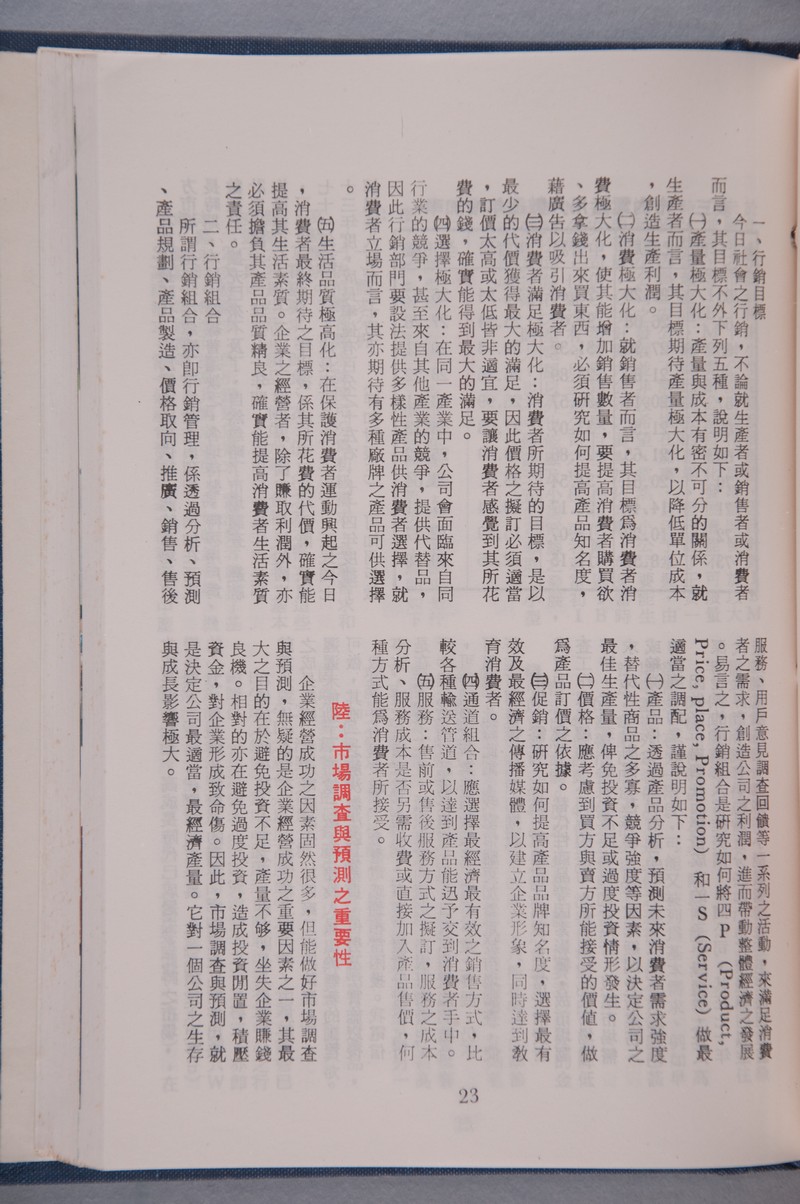 一、行銷目標
今日社會之行銷，不論就生產者或銷售者或消費者
而言，其目標不外下列五種，說明如下：
㈠產量極大化：產量與成本有密不可分的關係，就
生產者而言，其目標期待產量極大化，以降低單位成本
，創造生產利潤。
㈡消費極大化：就銷售者而言，其目標爲消費者消
費極大化，使其能增加銷售數量，要提高消費者購買欲
、多拿錢出來買東西，必須研究如何提高產品知名度，
藉廣告以吸引消費者。
㈢消費者滿足極大化：消費者所期待的目標，是以
最少的代價獲得最大的滿足，因此價格之擬訂必須適當
，訂價太高或太低皆非適宜，要讓消費者感覺到其所花
費的錢，確實能得到最大的滿足。
㈣選擇極大化：在同一產業中，公司會面臨來自同
行業的競爭，甚至來自其他產業的競爭，提供代替品，
因此行銷部門要設法提供多樣性產品供消費者選擇，就
消費者立場而言，其亦期待有多種廠牌之產品可供選擇
。
㈤生活品質極高化：在保護消費者運動興起之今日
，消費者最終期待之目標，係其所花費的代價，確實能
提高其生活素質。企業之經營者，除了賺取利潤外，亦
必須擔負其產品品質精良，確實能提高消費者生活素質
之責任。
二、行銷組合
所謂行銷組合，亦卽行銷管理，係透過分析、預測
、產品規劃、產品製造、價格取向、推廣、銷售、售後
服務、用戶意見調查回饋等一系列之活動，來滿足消費
者之需求，創造公司之利潤，進而帶動整體經濟之發展
。易言之，行銷組合是研究如何將四P（Product,
Price, place, Promotion）和一S（Service）做最
適當之調配，謹說明如下：
㈠產品：透過產品分析，預測未來消費者需求強度
，替代性商品之多寡，競爭強度等因素，以決定公司之
最佳生產量，俾免投資不足或過度投資情形發生。
㈡價格：應考慮到買方與賣方所能接受的價值，做
爲產品訂價之依據。
㈢促銷：研究如何提高產品品牌知名度，選擇最有
效及最經濟之傳播媒體，以建立企業形象，同時達到敎
育消費者。
㈣通道組合：應選擇最經濟最有效之銷售方式，比
較各種輸送管道，以達到產品能迅予交到消費者手中。
㈤服務：售前或售後服務方式之擬訂，服務之成本
分析、服務成本是否另需收費或直接加入產品售價，何
種方式能爲消費者所接受。
陸：市場調查與預測之重要性
企業經營成功之因素固然很多，但能做好市場調查
與預測，無疑的是企業經營成功之重要因素之一，其最
大之目的在於避免投資不足，產量不够，坐失企業賺錢
良機。相對的亦在避免過度投資，造成投資閒置，積壓
資金，對企業形成致命傷。因此，市場調查與預測，就
是決定公司最適當，最經濟產量。它對一個公司之生存
與成長影響極大。
23